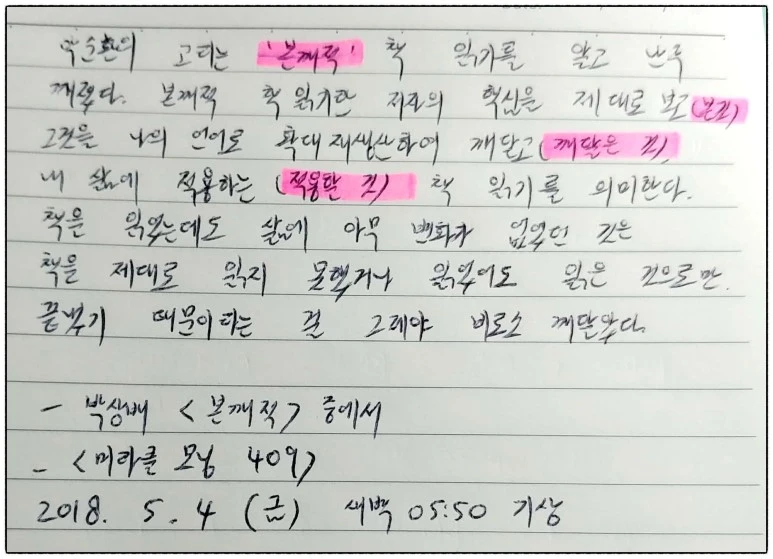 고리는 '본깨적' 책 읽기를 알고 난 후
깨졌다. 본깨적 책 읽기란 저자의 핵심을 제대로 보고(본것)
그것을 나의 언어로 확대 재생산하여 깨닫고(깨달은 것),
내 삶에 적용하는 (적용할 것) 책 읽기를 의미한다.
책을 읽었는데도 삶에 아무 변화가 없었던 것은
책을 제대로 읽지 못했거나 읽었어도 읽은 것으로만
끝냈기 때문이라는 걸 그제야 비로소 깨달았다.
- 박상배 <본깨적> 중에서
- <미라클 모닝 409>
2018. 5. 4 (금) 새벽 05:50 기상